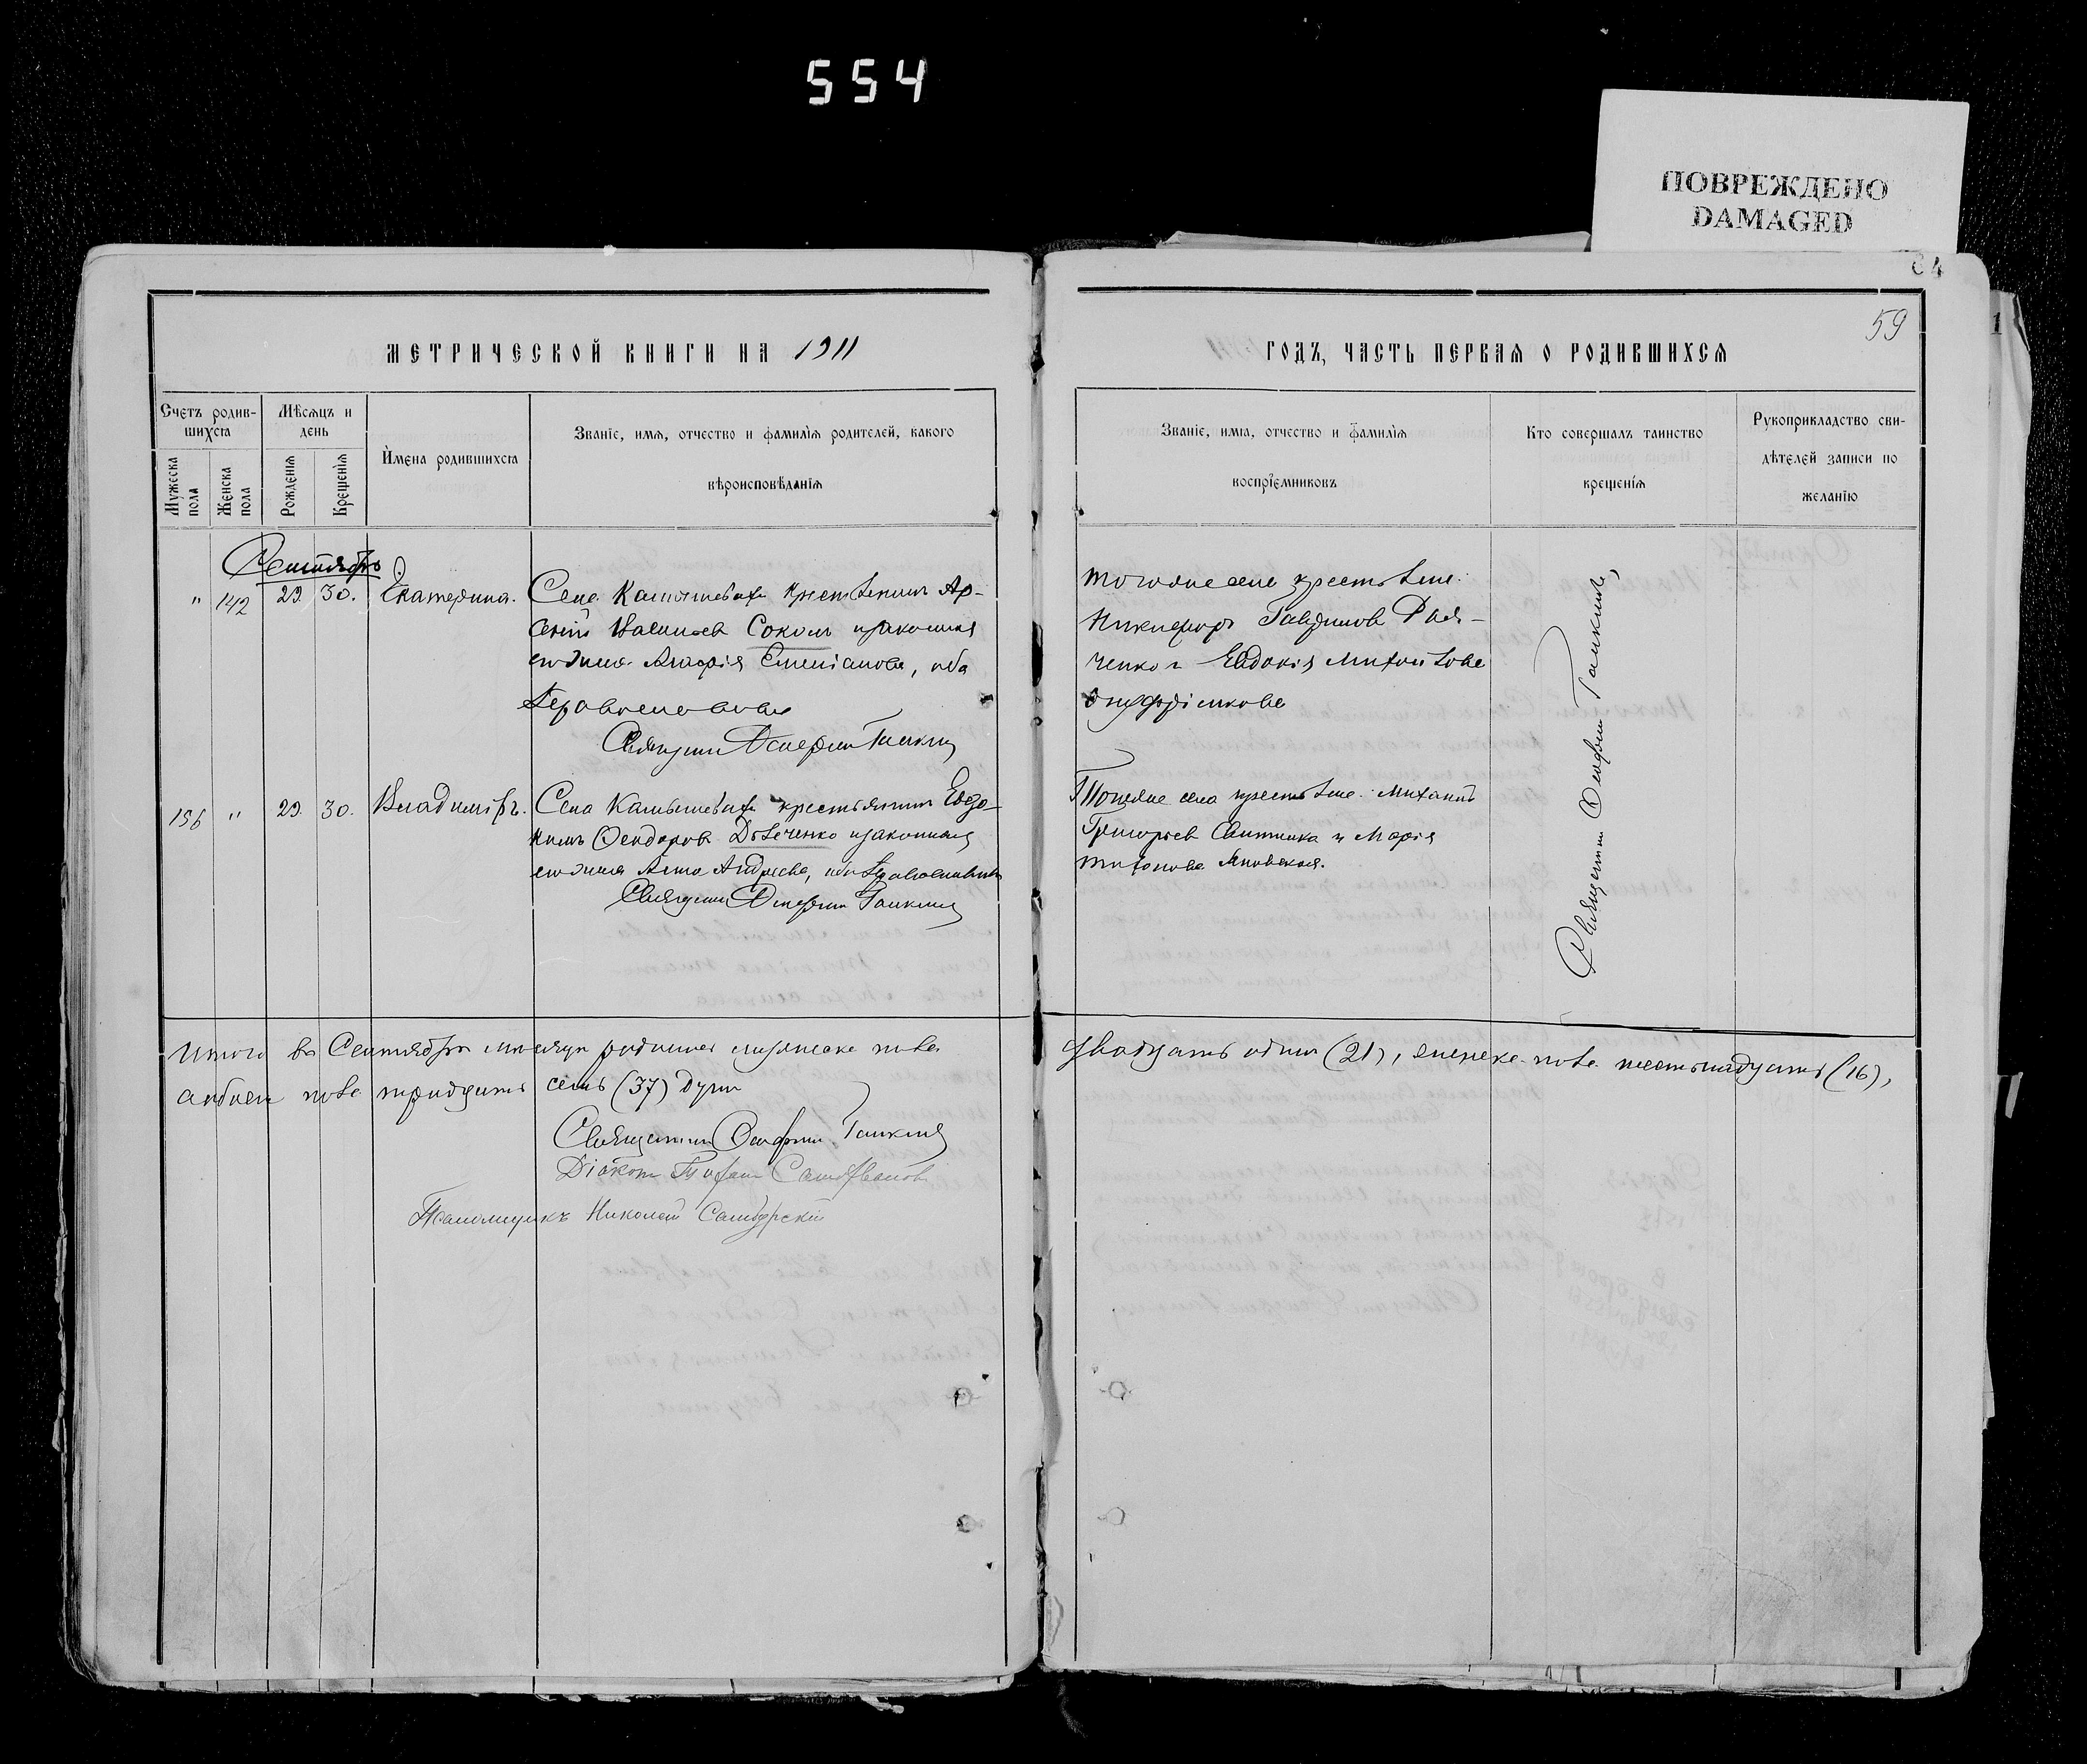 554
ПОВРЕЖДЕНО
DAMAGED
64
59
МЕТРИЧЕСКОЙ КНИГИ НА 1911
ГОДЪ, ЧАСТЬ ПЕРВАЯ О РОДИВШИХСЯ
Счетъ родив-
шихся
Мужеска пола
Женска пола
Мѣсяцъ и
день
Рожденія
Крещенія
Имена родившихся
Званіе, имя, отчество и фамилія родителей, какого
вѣроисповѣданія
Званіе, имя, отчество и фамилія
воспріемниковъ
Кто совершалъ таинство
крещенія
Рукоприкладство сви-
дѣтелей записи по
желанію
Сентябрь
" 142 29. 30. Екатерина.
Села Камышевахи крестьянинъ Ар-
сеній Васильев Соколъ и законная
его жена Агафія Стефанова, оба
православные
Священник Онисифор Гапкин
того же села крестьяне:
Никифоръ Гаврилов
и Евдокія Михайлова
156 " 29. 30. Владиміръ.
Села Камышевахи крестьянинъ Евдо-
кимъ Феодоров Дьяченко и законная
его жена Анна Андреева, оба православные
Священник Гапкин
Того же села крестьяне: Михаилъ
Григорьев и Марія
Тихонова Яновская.
Священник Гапкин
Итого въ Сентябрѣ мѣсяцѣ родилось мужеска пола
двадцать один (21), женска пола шестнадцать (16),
а обоего пола тридцать семь (37) душ
Священник Гапкин
Діакон
Псаломщикъ Николай Самборскій